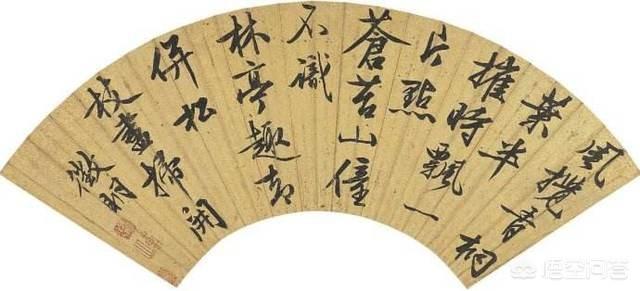 風攪青桐
葉半
摧時飄一
片點
蒼苔山僮
不識
林亭趣却
併松
枝盡掃開
徵明
悟空问答